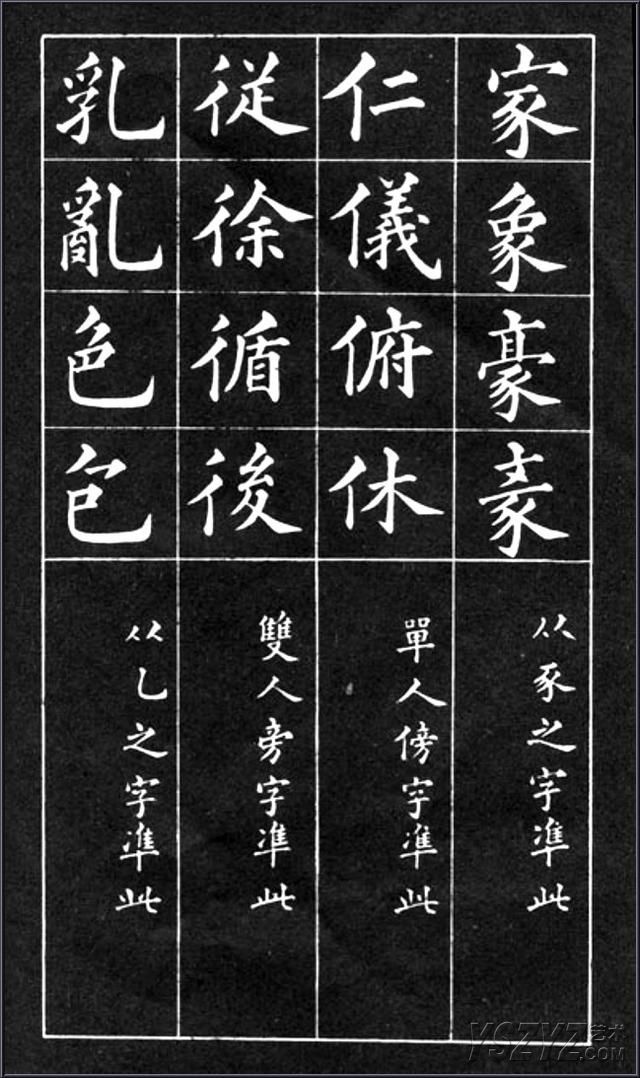 家象豪
从豕之字凖此
仁儀俯休
單人傍字凖此
従徐循後
雙人旁字凖此
乳亂色包
从乚之字凖此
YSZYZ艺术
.COM